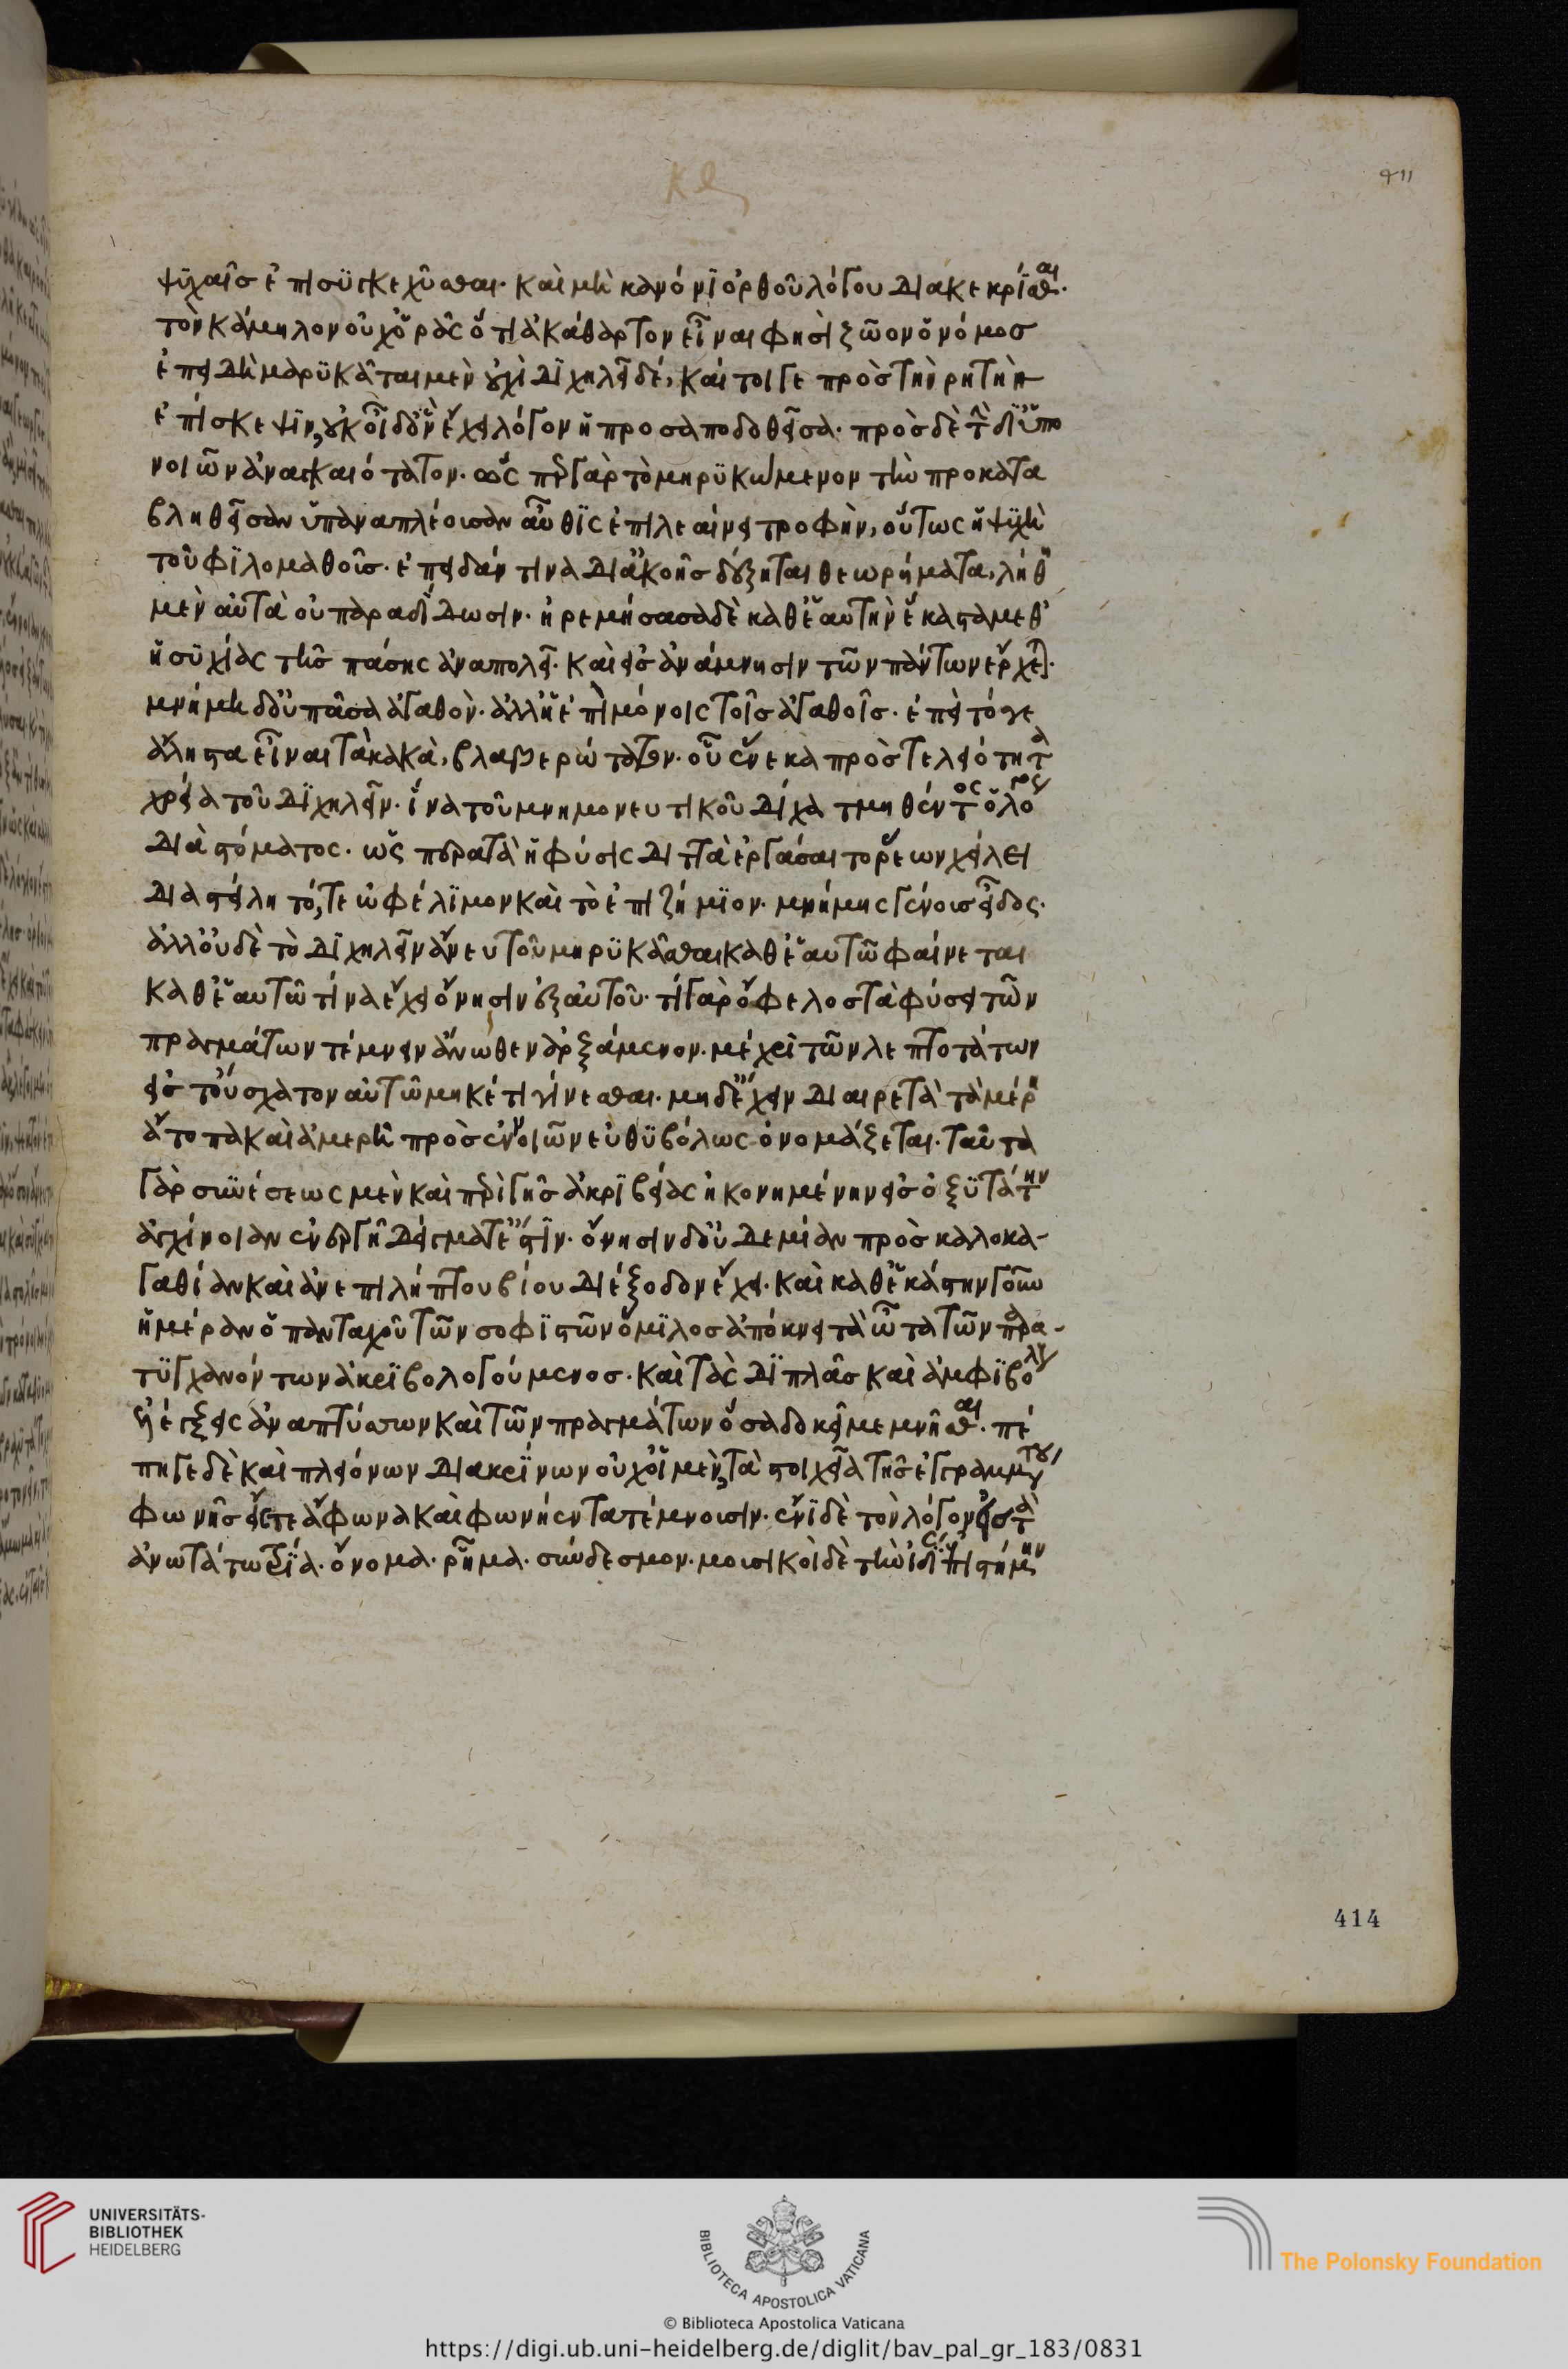 ψιχαῖς ἐπισϋγκεχῦσθαι· καὶ μὴ κανόνϊ ὀρθοῦ λόγου διακεκρίσθαι·
τὸν κάμηλον οὐχ ὁρᾶς ὅτι ἀκάθαρτον εἶναι φησὶ ζῶον ὁ νόμοσ
ἐπειδὴ μαρϋκᾶται μὲν οὐχὶ δϊχηλεῖ δέ, καίτοι γε πρὸσ τὴν ρητὴν
ἐπίσκεψϊν, οὐκ οἶδ' ὃν ἔχει λόγον ἡ προσαποδοθεῖσα· πρὸσ δὲ τὴν δϊ ὑπο
νοιῶν ἀναγκαιότατον· ὥσπερ γὰρ τὸ μηρϋκώμενον τὴν προκατα
βληθεῖσαν ὑπαναπλέουσαν αὖθϊς ἐπιλεαίνει τροφὴν, οὕτως ἡ ψϋχὴ
τοῦ φϊλομαθοῦσ· ἐπειδάν τινα δι' ἀκοῆσ δέξηται θεωρήματα, λήθη
μὲν αὐτὰ οὐ παραδίδωσιν· ἠρεμήσασα δὲ καθ' ἑαυτὴν ἕκαστα μεθ'
ἡσϋχίας τῆσ πάσης ἀναπολεῖ· καὶ εἰσ ἀνάμνησιν τῶν πάντων ἔρχεται·
μνήμη δ' οὐ πᾶσα ἀγαθὸν· ἀλλ' ἡ ἐπὶ μόνοις τοῖσ ἀγαθοῖσ· ἐπεὶ τόγε
ἄληστα εἶναι τὰ κακὰ, βλαβερώτατον· οὗ ἕνεκα πρὸσ τελειότητα
χρεία τοῦ δϊχηλεῖν· ἵνα τοῦ μνημονευτικοῦ δίχα τμηθέντος ὁ λόγος
διὰ στόματος· ὡς πέρατα ἡ φύσις διττὰ ἐργάσαιτο ρέων χείλει
διαστείλη τό, τε ὠφέλϊμον καὶ τὸ ἐπιζήμϊον· μνήμης γένουσ εἶδος·
ἀλλ' οὐδὲ τὸ δϊχηλεῖν ἄνευ τοῦ μηρϋκᾶσθαι καθ' ἑαυτῶ φαίνεται
καθ' ἑαυτῶ τίνα ἔχει ὄνησιν ἐξ αὐτοῦ· τί γὰρ ὄφελοσ τὰ φύσει τῶν
πραγμάτων τέμνειν ἄνωθεν ἀρξάμενον· μέχρϊ τῶν λεπτοτάτων
εἰσ τοὔσχατον αὐτῶ μηκέτι γίνεσθαι· μηδ' ἔχειν διαιρετὰ τὰ μέρη
ἄτοπα καὶ ἀμερῆ πρὸσ ἐνοιῶν εὐθϋβόλως ὀνομάζεται· ταῦτα
γὰρ συνέσεως μὲν καὶ περὶ γῆσ ἀκρϊβείας ἠκονημένην εἰσ ὀξϋτάτην
ἀγχίνοιαν ἐναργῆ δείγματ' ἔστϊν· ὄνησιν δ' οὐδεμίαν πρὸσ καλοκα-
γαθίαν καὶ ἀνεπιλήπτου βίου διέξοδον ἔχει· καὶ καθ' ἑκάστην γοῦν
ἡμέραν ὁ πανταχοῦ τῶν σοφϊστῶν ὅμϊλοσ ἀπόκνει τὰ ὦτα τῶν παρα-
τϋγχανόντων ἀκρϊβολογούμενοσ· καὶ τὰς δϊπλᾶσ καὶ ἀμφϊβόλους
λέξεις ἀναπτύσσων καὶ τῶν πραγμάτων ὅσα δοκεῖ μεμνῆσθαι· πέ
πηγε δὲ καὶ πλειόνων διακρϊνων οὐχ οἱ μὲν, τὰ στοιχεῖα τῆσ ἐγγραμμάτου
φωνῆσ εἴς τε ἄφωνα καὶ φωνήεντα τέμνουσιν· ἔνϊοι δὲ τὸν λόγον εἰσ τὰ
ἀνωτάτω τρϊα· ὄνομα· ρῆμα· σύνδεσμον· μουσικοὶ δὲ τὴν ἰδϊαν ἐπιστήμην
κθ
411
414
UNIVERSITÄTS-
BIBLIOTHEK
HEIDELBERG
BIBLIOTECA APOSTOLICA VATICANA
The Polonsky Foundation
© Biblioteca Apostolica Vaticana
https://digi.ub.uni-heidelberg.de/diglit/bav_pal_gr_183/0831